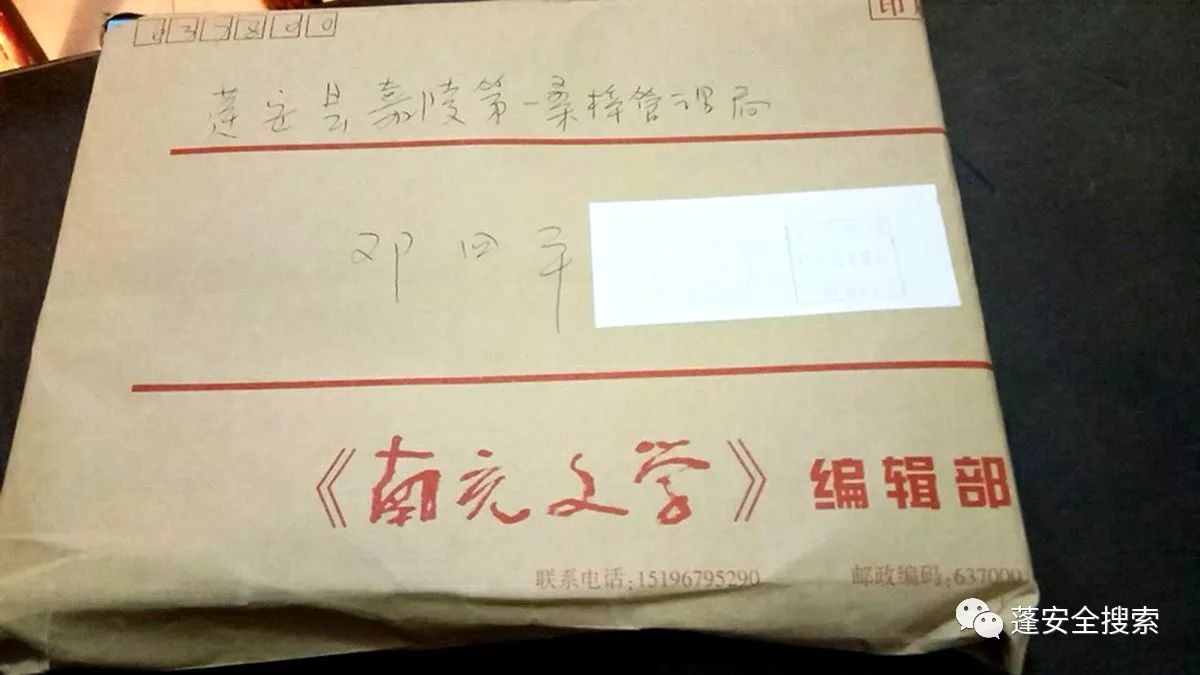 637800
印
蓬安县嘉陵第一桑梓管理局
邓四平
《南充文学》编辑部
联系电话:15196795290 邮政编码:637000
蓬安全搜索